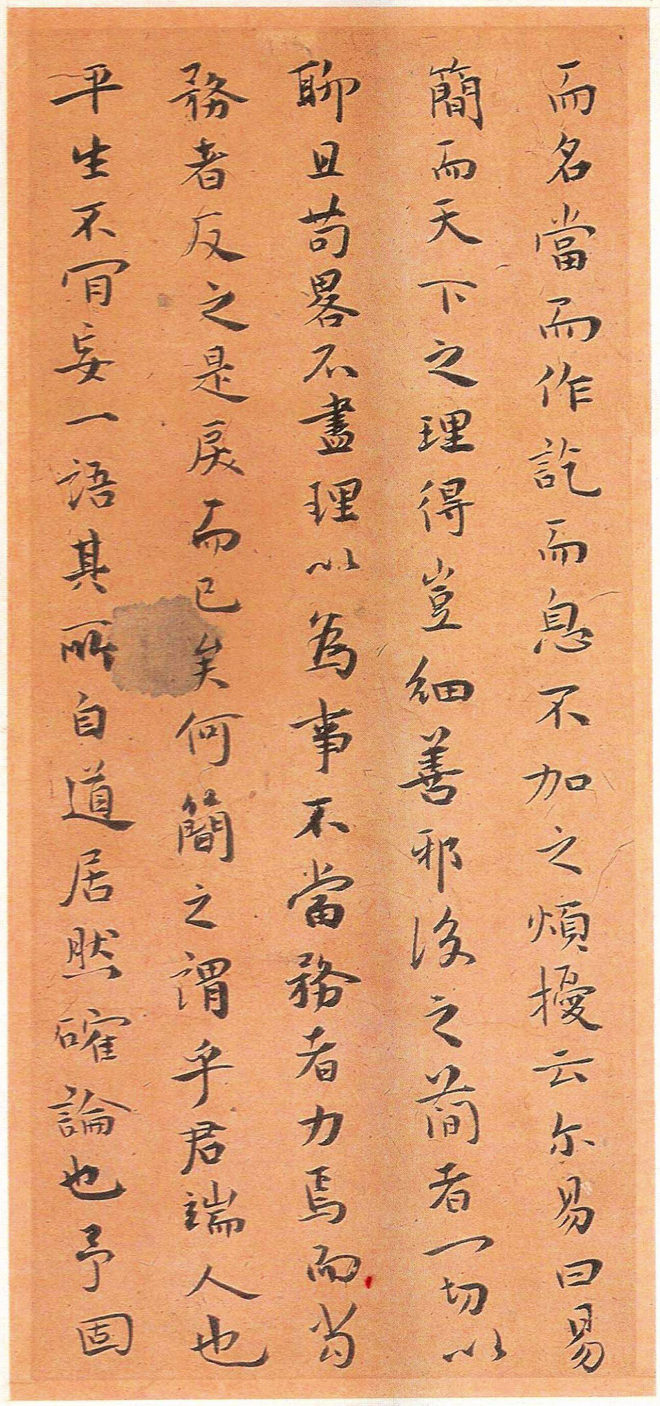 而名當而作訖而息不加之煩擾云尔易曰易
簡而天下之理得豈細善邪後之簡者一切以
聊且苟畧不盡理以為事不當務者力焉而當
務者反之是戾而已矣何簡之謂乎君端人也
平生不肎妄一語其所自道居然確論也予固